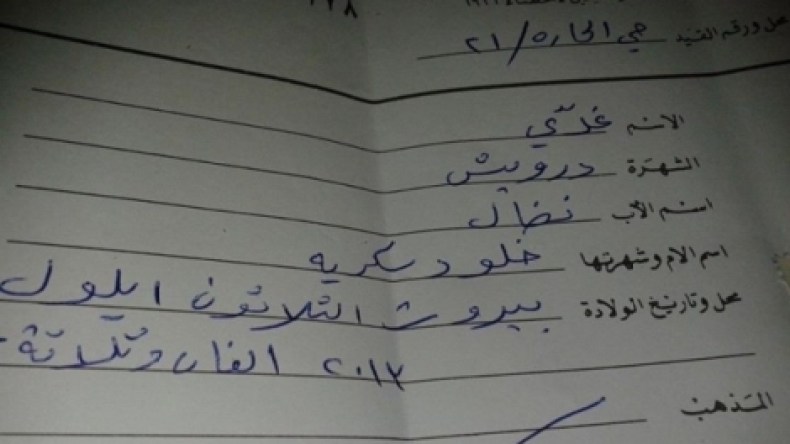 محل ورقم القيد حي الحاره/٢١
الاسم غدي
الشهرة درويش
اسم الأب نضال
اسم الام وشهرتها خلود سكريه
محل وتاريخ الولادة بيروت الثلاثون ايلول
٢٠١٣ الفان وثلاثة
المذهب /